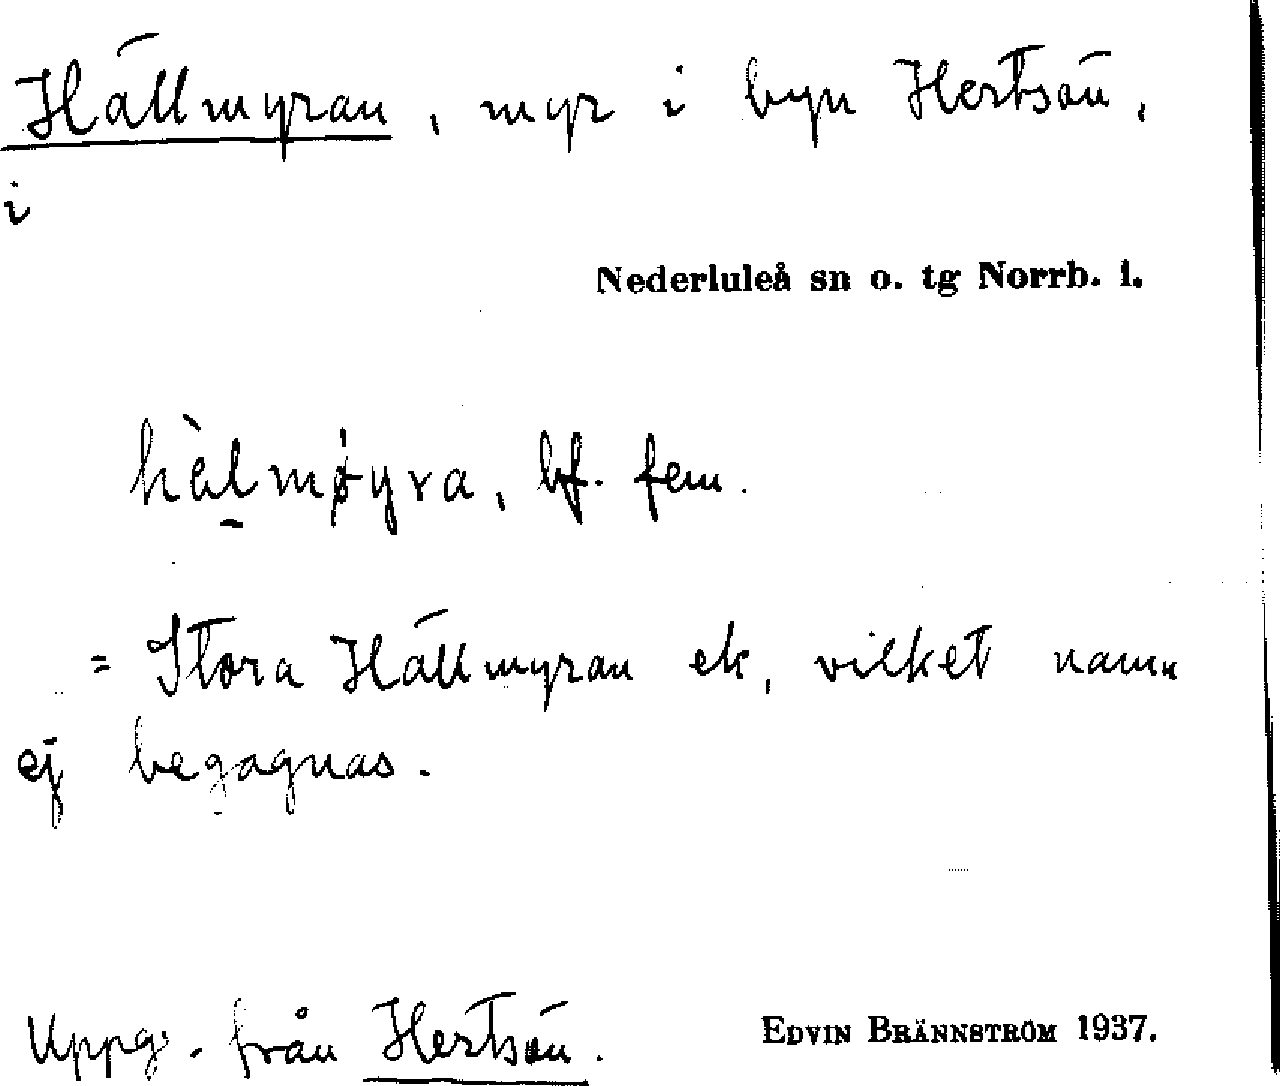 Hällmyran, myr i byn Hertsön,
i
Nederluleå sn o. tg Norrb. l.
hèlmøyra, bf. fem.
= Stora Hällmyran ek, vilket namn
ej begagnas.
Uppg. från Hertsön.
EDVIN BRÄNNSTRÖM 1937.